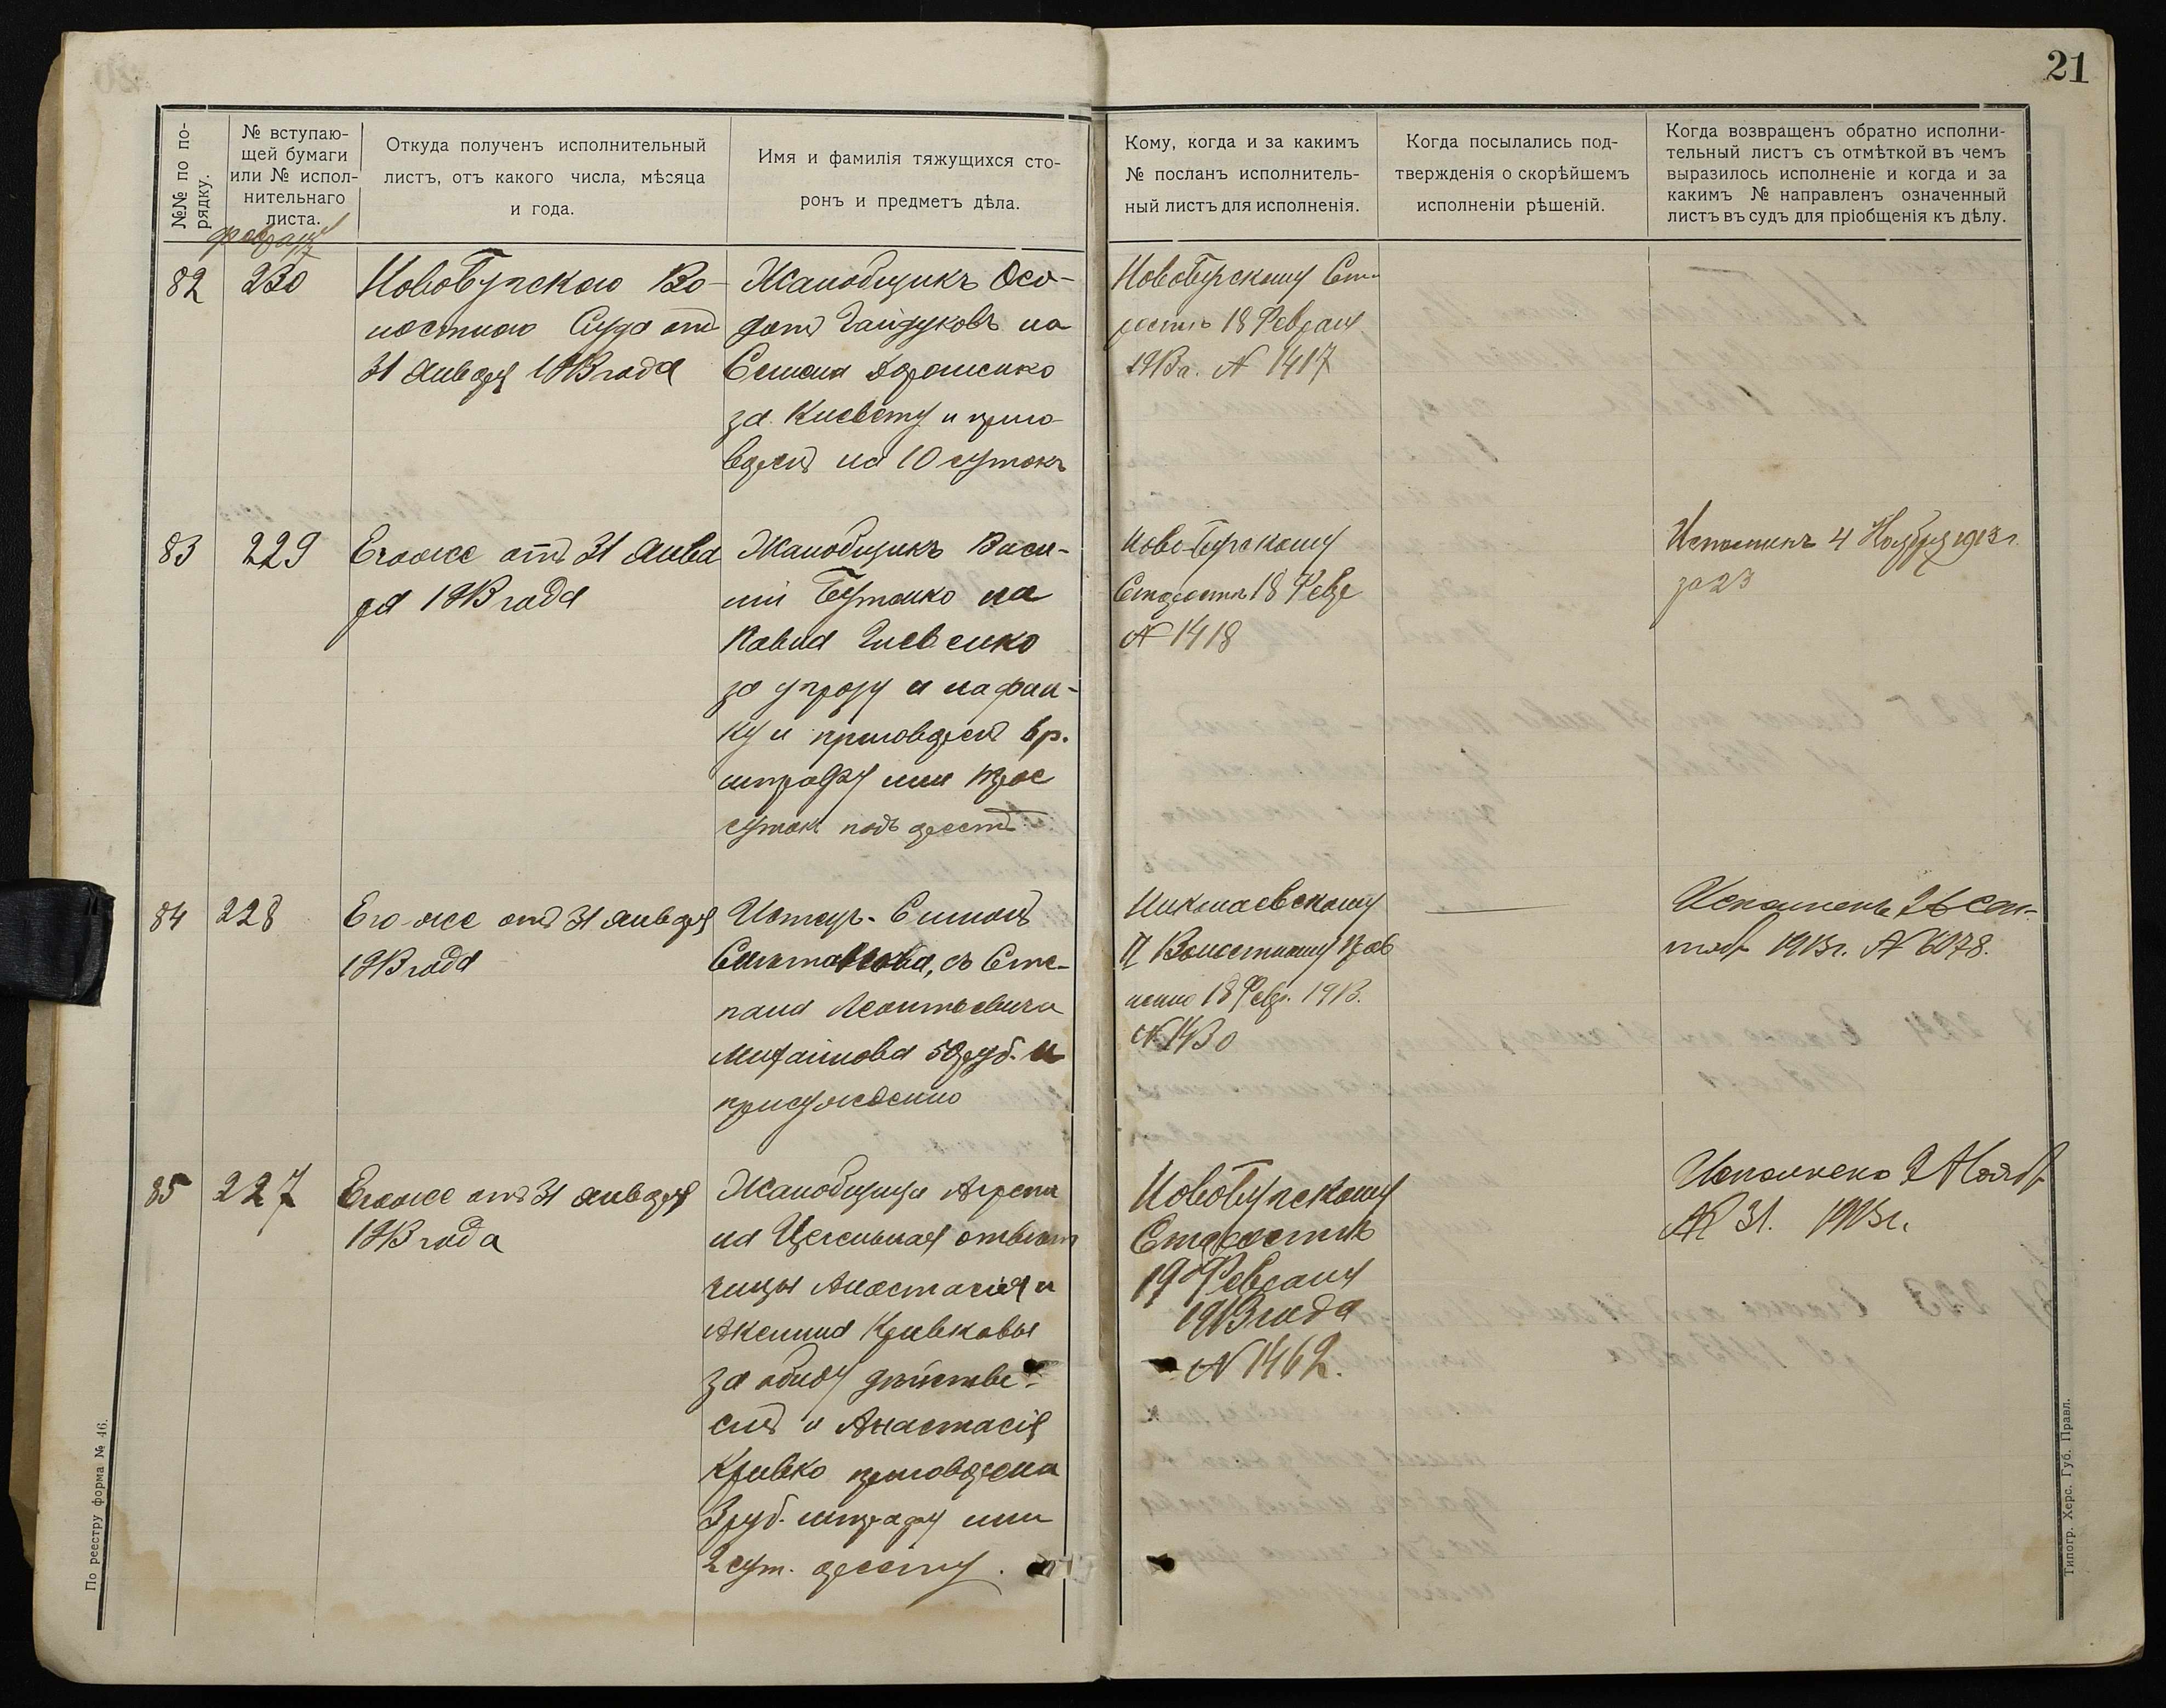 21
№№ по по-
рядку.
№ вступаю-
щей бумаги
или № испол-
нительнаго
листа.
Откуда полученъ исполнительный
листъ, отъ какого числа, мѣсяца
и года.
Имя и фамилія тяжущихся сто-
ронъ и предметъ дѣла.
Кому, когда и за какимъ
№ посланъ исполнитель-
ный листъ для исполненія.
Когда посылались под-
твержденія о скорѣйшемъ
исполненіи рѣшеній.
Когда возвращенъ обратно исполни-
тельный листъ съ отмѣткой въ чемъ
выразилось исполненіе и когда и за
какимъ № направленъ означенный
листъ въ судъ для пріобщенія къ дѣлу.
февраля
82
230
Новобугскаго Во-
лостного Суда отъ
31 Января 1913 года
Жалобщикъ Фео-
дотъ Гайдуковъ на
Семена Дорошенко
за Клевету и приго-
воренъ на 10 сутокъ
Новобугскому Ста-
ростѣ 18 Февраля
1913 г. № 1417
83
229
Его-же отъ 31 Янва
ря 1913 года
Жалобщикъ Васи-
лій Бутенко на
Павла Гиевенко
за угрозу и
и приговоренъ
штрафу или трое
сутокъ подъ арестъ
Ново-Бугскому
Старостѣ 18 Февр
№ 1418
Исполненъ 4 Ноября 1913 г.
за 23
84
228
Его-же отъ 31 Января
1913 года
Истецъ - Симонъ
съ Сте-
пана Леонтьевича
Михайлова 50 руб. и
присуждено
Николаевскому
II Волостному Прав
ленію 18 Февр. 1913.
№ 1430
Исполненъ 26 Сен-
тяб 1913 г. № 6078.
85
227
Его-же отъ 31 Января
1913 года
Жалобщица Агрепи
на отвѣт
чицы Анастасія и
Аксинія Кривковы
за обиду дѣйстве-
емъ и Анастасія
Кривко приговорена
3 руб. штрафу или
2 сут. аресту.
Новобугскому
Старостѣ
19 Февраля
1913 года
№ 1462.
Исполнено 2 Нояб
№ 31. 1913 г.
По реестру форма № 46.
Типогр. Херс. Губ. Правл.